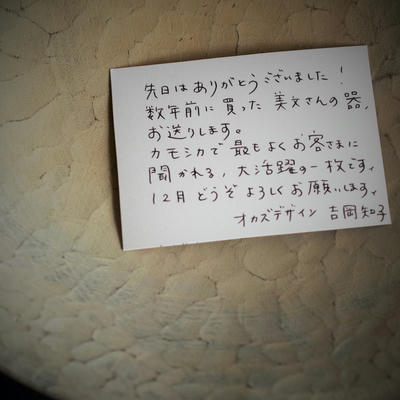 先日はありがとうございました！
数年前に買った美文さんの器、
お送りします。
カモシカで最もよくお客さまに
聞かれる、大活躍の一枚です。
12月どうぞよろしくお願いします。
オカズデザイン 吉岡知子